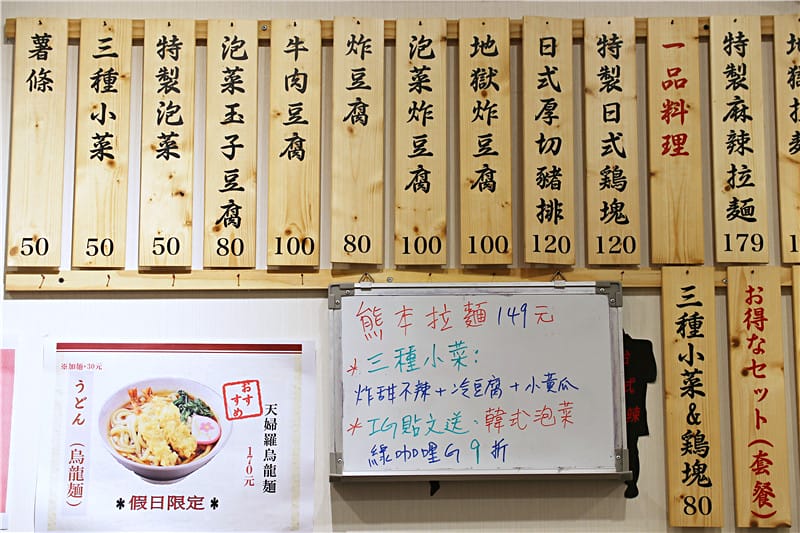 薯條
50
三種小菜
50
特製泡菜
50
泡菜玉子豆腐
80
牛肉豆腐
100
炸豆腐
80
泡菜炸豆腐
100
地獄炸豆腐
100
日式厚切豬排
120
特製日式鶏塊
120
一品料理
特製麻辣拉麵
179
地獄拉麵
1
三種小菜&鶏塊
80
お得なセット(套餐)
熊本拉麵149元
*三種小菜:
炸甜不辣+冷豆腐+小黃瓜
*IG貼文送:韓式泡菜
綠咖哩G 9折
※加麵+30元
うどん(烏龍麵)
おすすめ
天婦羅烏龍麵
170元
*假日限定*